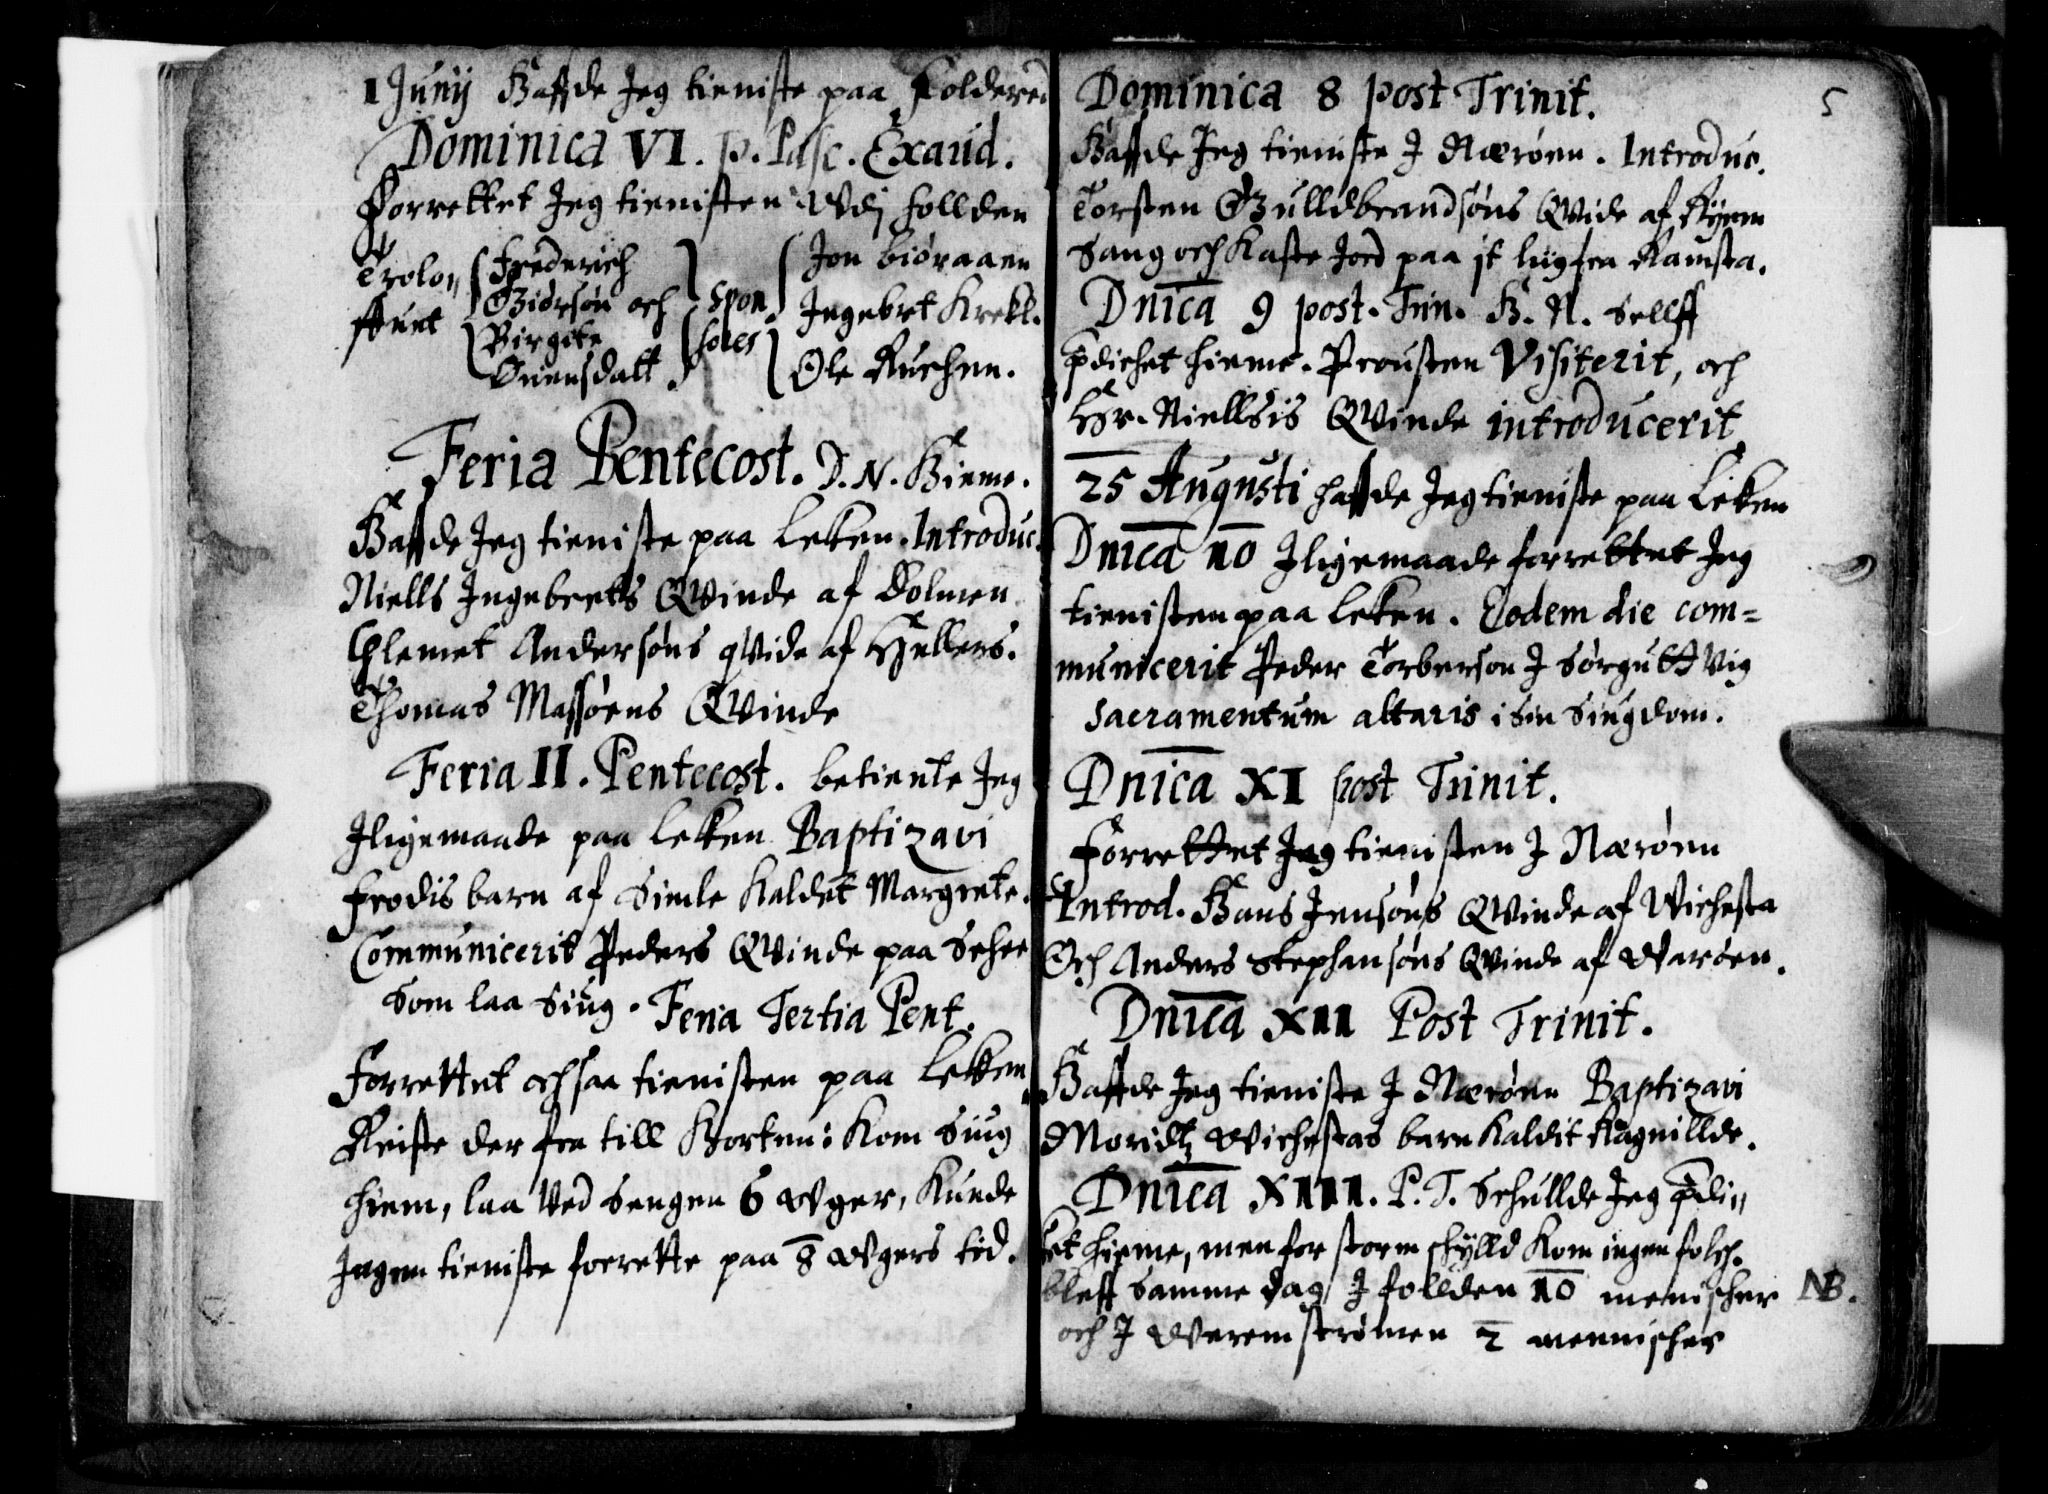 1 Junij Haffde Jeg tieniste paa Folderei
Dominica VI. p. Pasc. Exaud.
Forrettet Jeg tienisten Vdj follden
Trolo,, Frederich Jon biøraaen
Giørsøn och spon Ingebrt Krekl.
ffuet Birgite sales
Suensdatt. Ole Ruchen.
Feria Pentecost. D. N. Hieme.
Haffde Jeg tieniste paa Leken. Introduc.
Niells Ingebretts Qvinde af Holmen
Clemet Andersøns qvide af Hellers.
Thomas Massøens Qvinde
Feria II. Pentecost. betiente Jeg
Iligemaade paa Leken Baptizavi
Frodis barn af Simle Kaldet Margrete.
Communicerit Peders Qvinde paa
Som laa Siug. Feria Tertia Pent.
Forrettet ochsaa tienisten paa Lekken
Reiste der fra till Horten: Kom Siug
hiem, laa Ved Sengen 6 Vger, Kunde
Ingen tieniste forrette paa 8 Vgers tid.
5
Dominica 8 post Trinit.
Haffde Jeg tieniste J Nærøen. Introduc.
Torsten Gulldbrandsøns Qvide af Ryem
Sang och Kaste Jord paa jt liig fra Ramsta.
Dnica 9 post. Trin. H. N. Sellff
pdichet hieme. Prousten Visiterit, och
Hr. Niellsis Qvinde introducerit
25 Augusti haffde Jeg tieniste paa Leken
Dnica 10 Iligemaade forrettet Jeg
tienisten paa Leken. Eodem die com=
municerit Peder Torberson J Sørgutt Vig
Sacramentum altaris i sin Siugdom.
Dnica XI post Trinit.
Forrettet Jeg tienisten J Nærøen
Introd. Hans Jensøns Qvinde af Vichesta
Och Anders Stephansøns Qvinde af Varøen.
Dnica XII Post Trinit.
Haffde Jeg tieniste J Nærøen Baptizavi
Moridtz Vichestas barn Kaldit Ragnillde.
Dnica XIII. P. T. Schullde Jeg pdi,,
ket hieme, men for storm skylld Kom ingen folch.
bleff Samme dag J follden 10 menischer NB.
och J Veremstrømen 2 mennischer